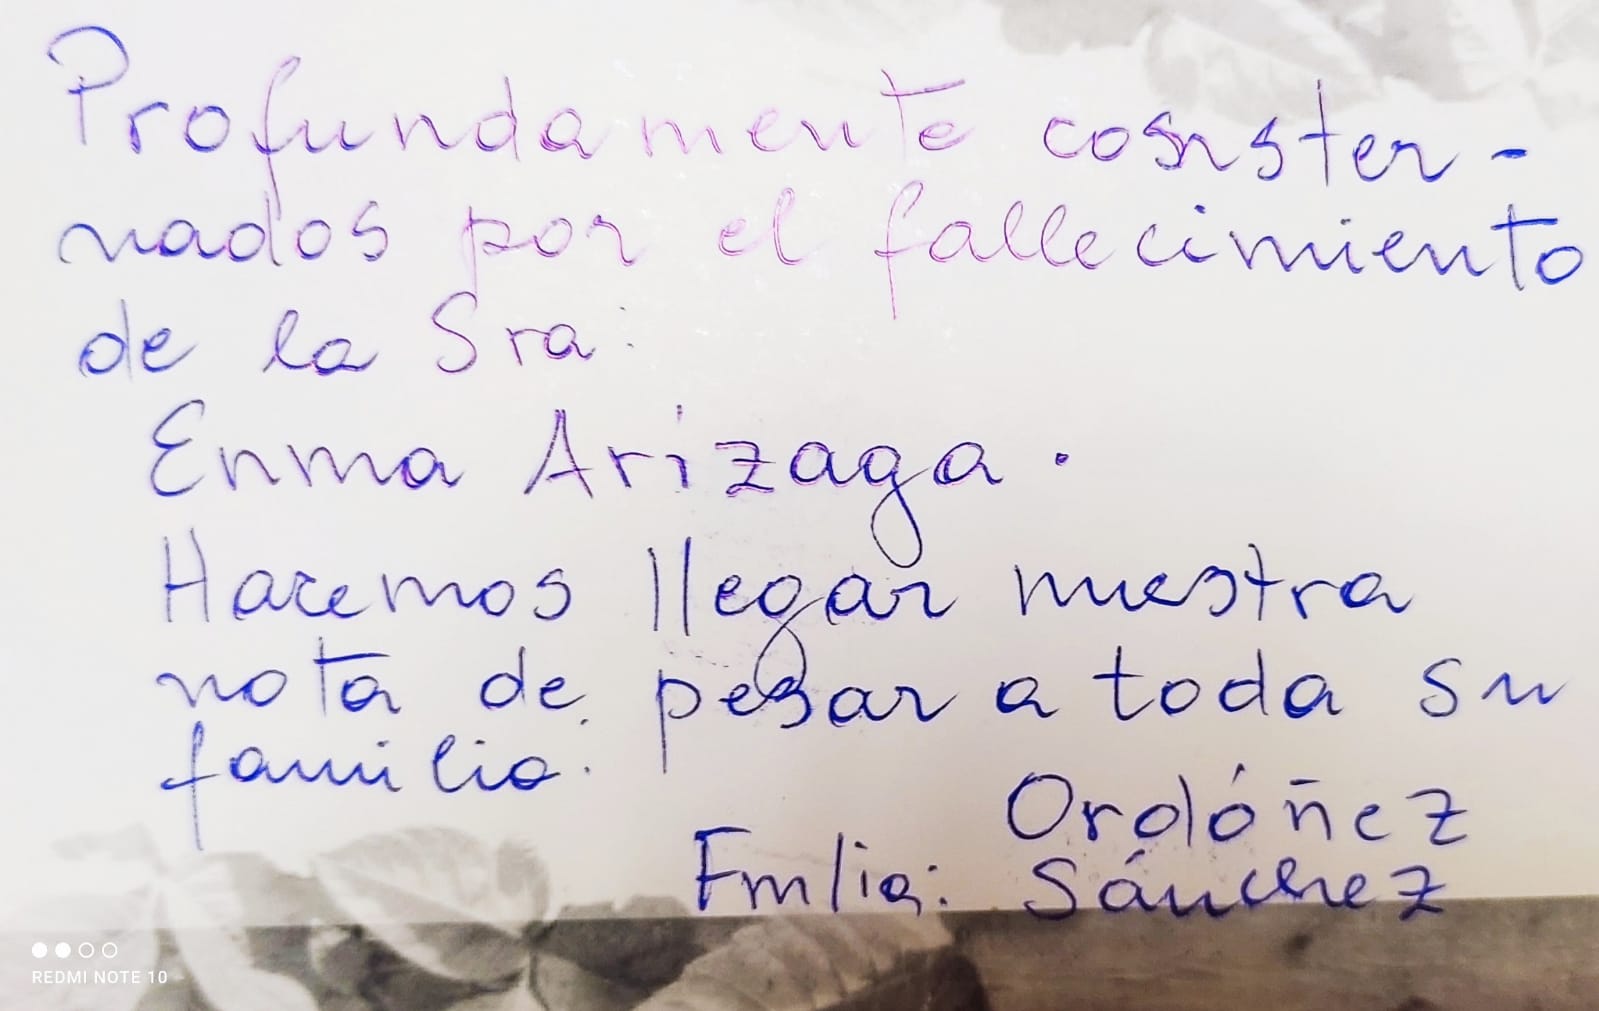 Profundamente conster-
nados por el fallecimiento
de la Sra:
Enma Arízaga.
Hacemos llegar nuestra
nota de pesar a toda su
familia:
Ordóñez
Fmlia: Sánchez
REDMI NOTE 10